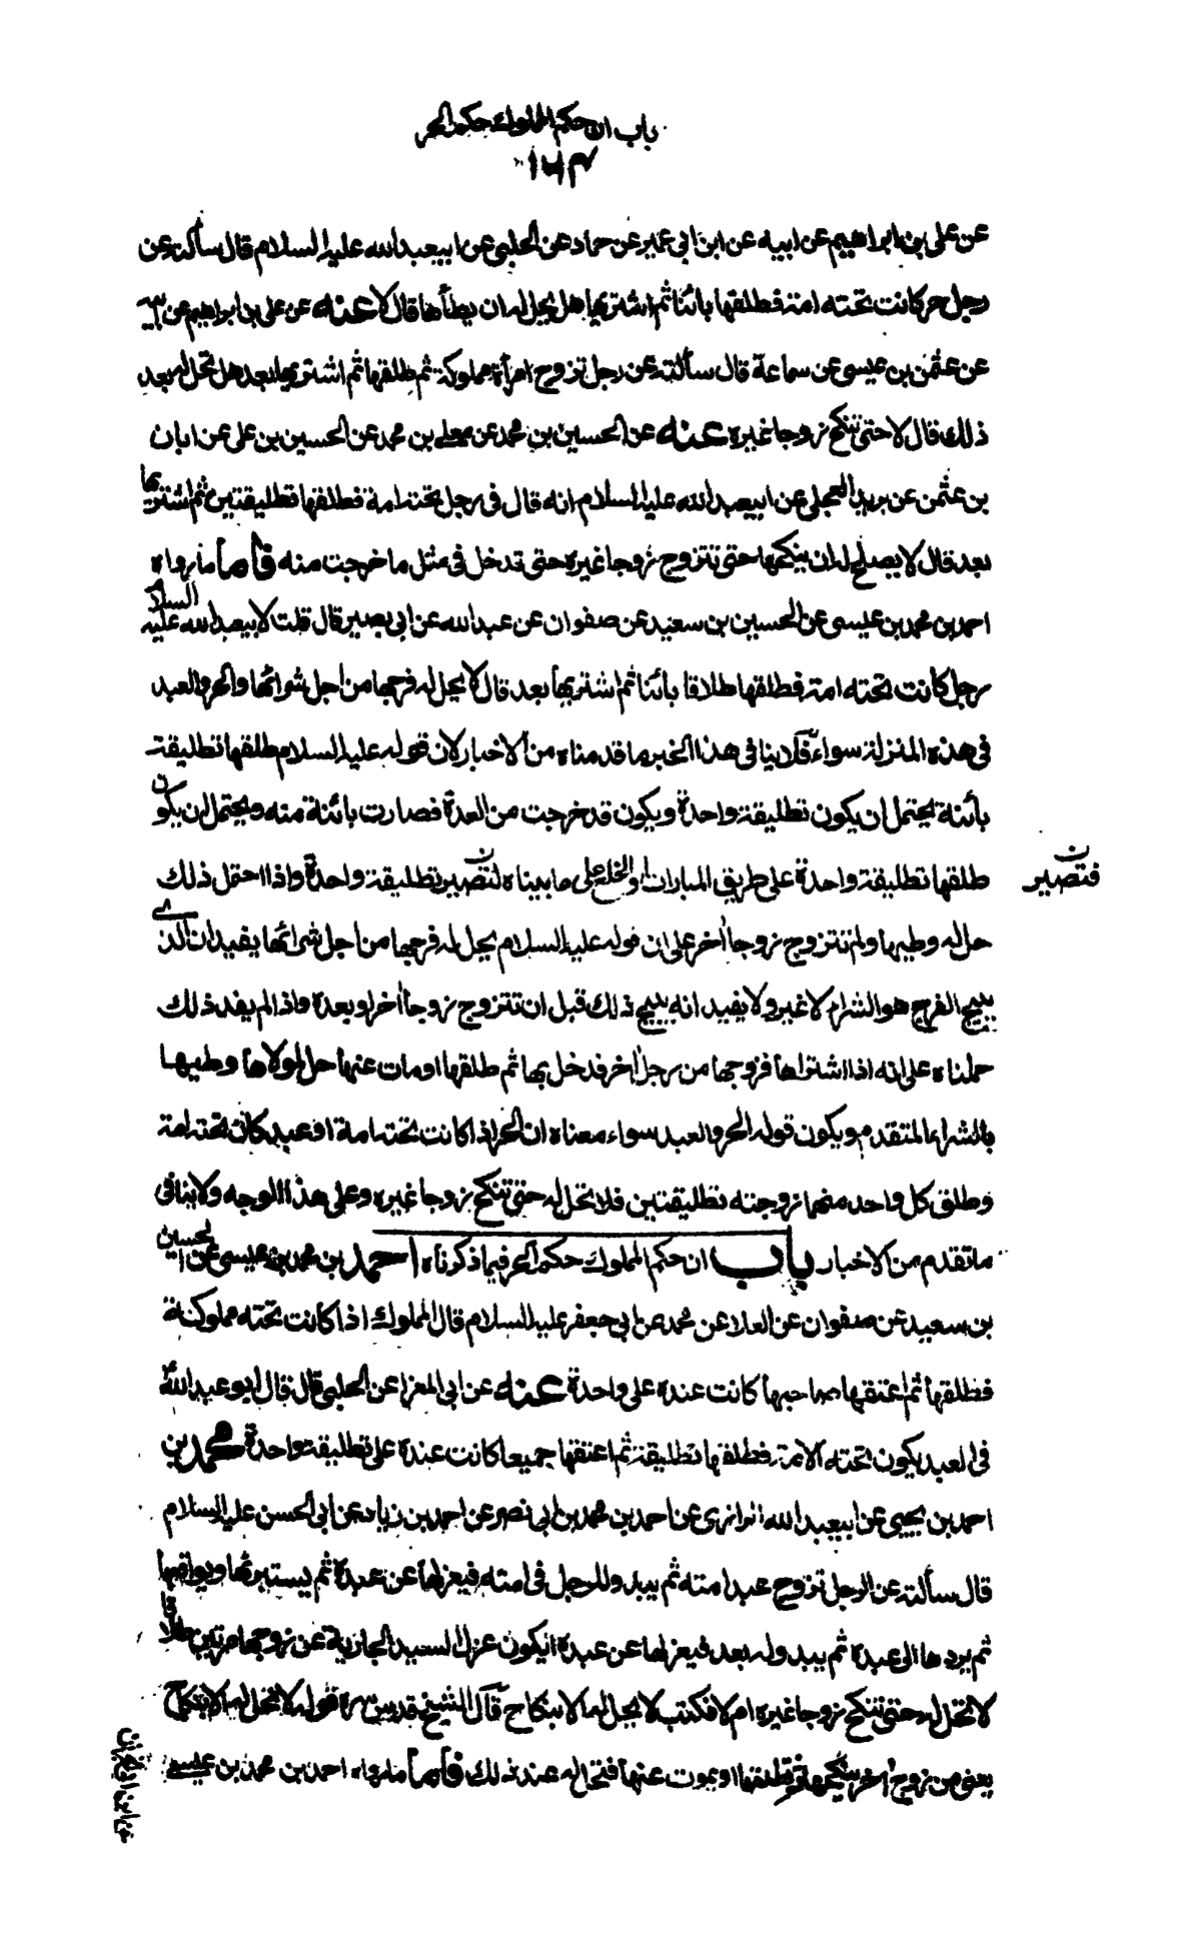 باب ان حكم المملوك حكم الحر
١٦٣
عن على بن ابراهيم عن ابيه عن ابن ابي عمير عن حماد عن الحلبي عن ابيعبدالله عليه السلام قال سألته عن
رجل حر كانت تحته امة فطلقها بائنا ثم اشتريها هل يحل له ان يطأها قال لا عنه عن على بن ابراهيم عن ابيه
عن عثمن بن عيسى عن سماعة قال سألته عن رجل تزوج امرأة مملوكة ثم طلقها ثم اشتريها بعد هل تحل له بعد
ذلك قال لا حتى تنكح زوجا غيره عنه عن الحسين بن محمد عن معلى بن محمد عن الحسين بن على عن ابان
بن عثمن عن بريد العجلى عن ابيعبدالله عليه السلام انه قال في رجل تحته امة فطلقها تطليقتين ثم اشتريها
بعد قال لا يصلح له ان ينكحها حتى تتزوج زوجا غيره حتى تدخل في مثل ما خرجت منه فاما ما رواه
احمد بن محمد بن عيسى عن الحسين بن سعيد عن صفوان عن عبدالله عن ابي بصير قال قلت لابيعبدالله عليه السلام
رجل كانت تحته امة فطلقها طلاقا بائنا ثم اشتريها بعد قال لا يحل له فرجها من اجل شرائها والحر والعبد
في هذه المنزلة سواء فلا ينا في هذا الخبر ما قدمناه من الاخبار لان قوله عليه السلام طلقها تطليقة
بائنة يحتمل ان يكون تطليقة واحدة ويكون قد خرجت من العدة فصارت بائنة منه ويحتمل ان يكون
طلقها تطليقة واحدة على طريق المبارات او الخلع على ما بيناه لتصير تطليقة واحدة واذا احتمل ذلك
فتصير ن
حل له وطيها ولم تتزوج زوجا اخر على ان قوله عليه السلام يحل له فرجها من اجل شرائها يفيد ان الذى
يبيح الفرج هو الشراء لا غير ولا يفيد انه يبيح ذلك قبل ان تتزوج زوجا اخر او بعده واذا لم يفد ذلك
حملناه على انه اذا اشتراها فزوجها من رجل اخر فدخل بها ثم طلقها او مات عنها حل لمولاها وطيها
بالشراء المتقدم ويكون قوله الحر والعبد سواء معناه ان الحر اذا كانت تحته امة او عبد كان تحته امة
وطلق كل واحد منهما زوجته تطليقتين فلا تحل له حتى تنكح زوجا غيره وعلى هذا الوجه ولا ينافى
ما تقدم من الاخبار باب ان حكم المملوك حكم الحر فيما ذكرناه احمد بن محمد بن عيسى عن الحسين
بن سعيد عن صفوان عن العلا عن محمد عن ابي جعفر عليه السلام قال المملوك اذا كانت تحته مملوكة
فطلقها ثم اعتقها صاحبها كانت عنده على واحدة عنه عن ابي المعزا عن الحلبى قال قال ابو عبدالله ع
في العبد يكون تحته الامة فطلقها تطليقة ثم اعتقها جميعا كانت عنده على تطليقة واحدة محمد بن
احمد بن يحيى عن ابيعبدالله الرازى عن احمد بن محمد بن ابي نصر عن احمد بن زياد عن ابي الحسن عليه السلام
قال سألته عن الرجل تزوج عبده امته ثم يبدو للرجل في امته فيعزلها عن عبده ثم يستبرئها ويواقعها
ثم يردها الى عبده ثم يبدو له بعد فيعزلها عن عبده ايكون عزل السيد الجارية عن زوجها مرتين طلاقا
لا تحل له حتى تنكح زوجا غيره ام لا فكتب لا يحل لها الا بنكاح قال الشيخ قدس سره قوله لا تحل له الا بنكاح
يعنى من زوج اخر ينكحها ثم يطلقها او يموت عنها فتحل له عند ذلك فاما ما رواه احمد بن محمد بن عيسى